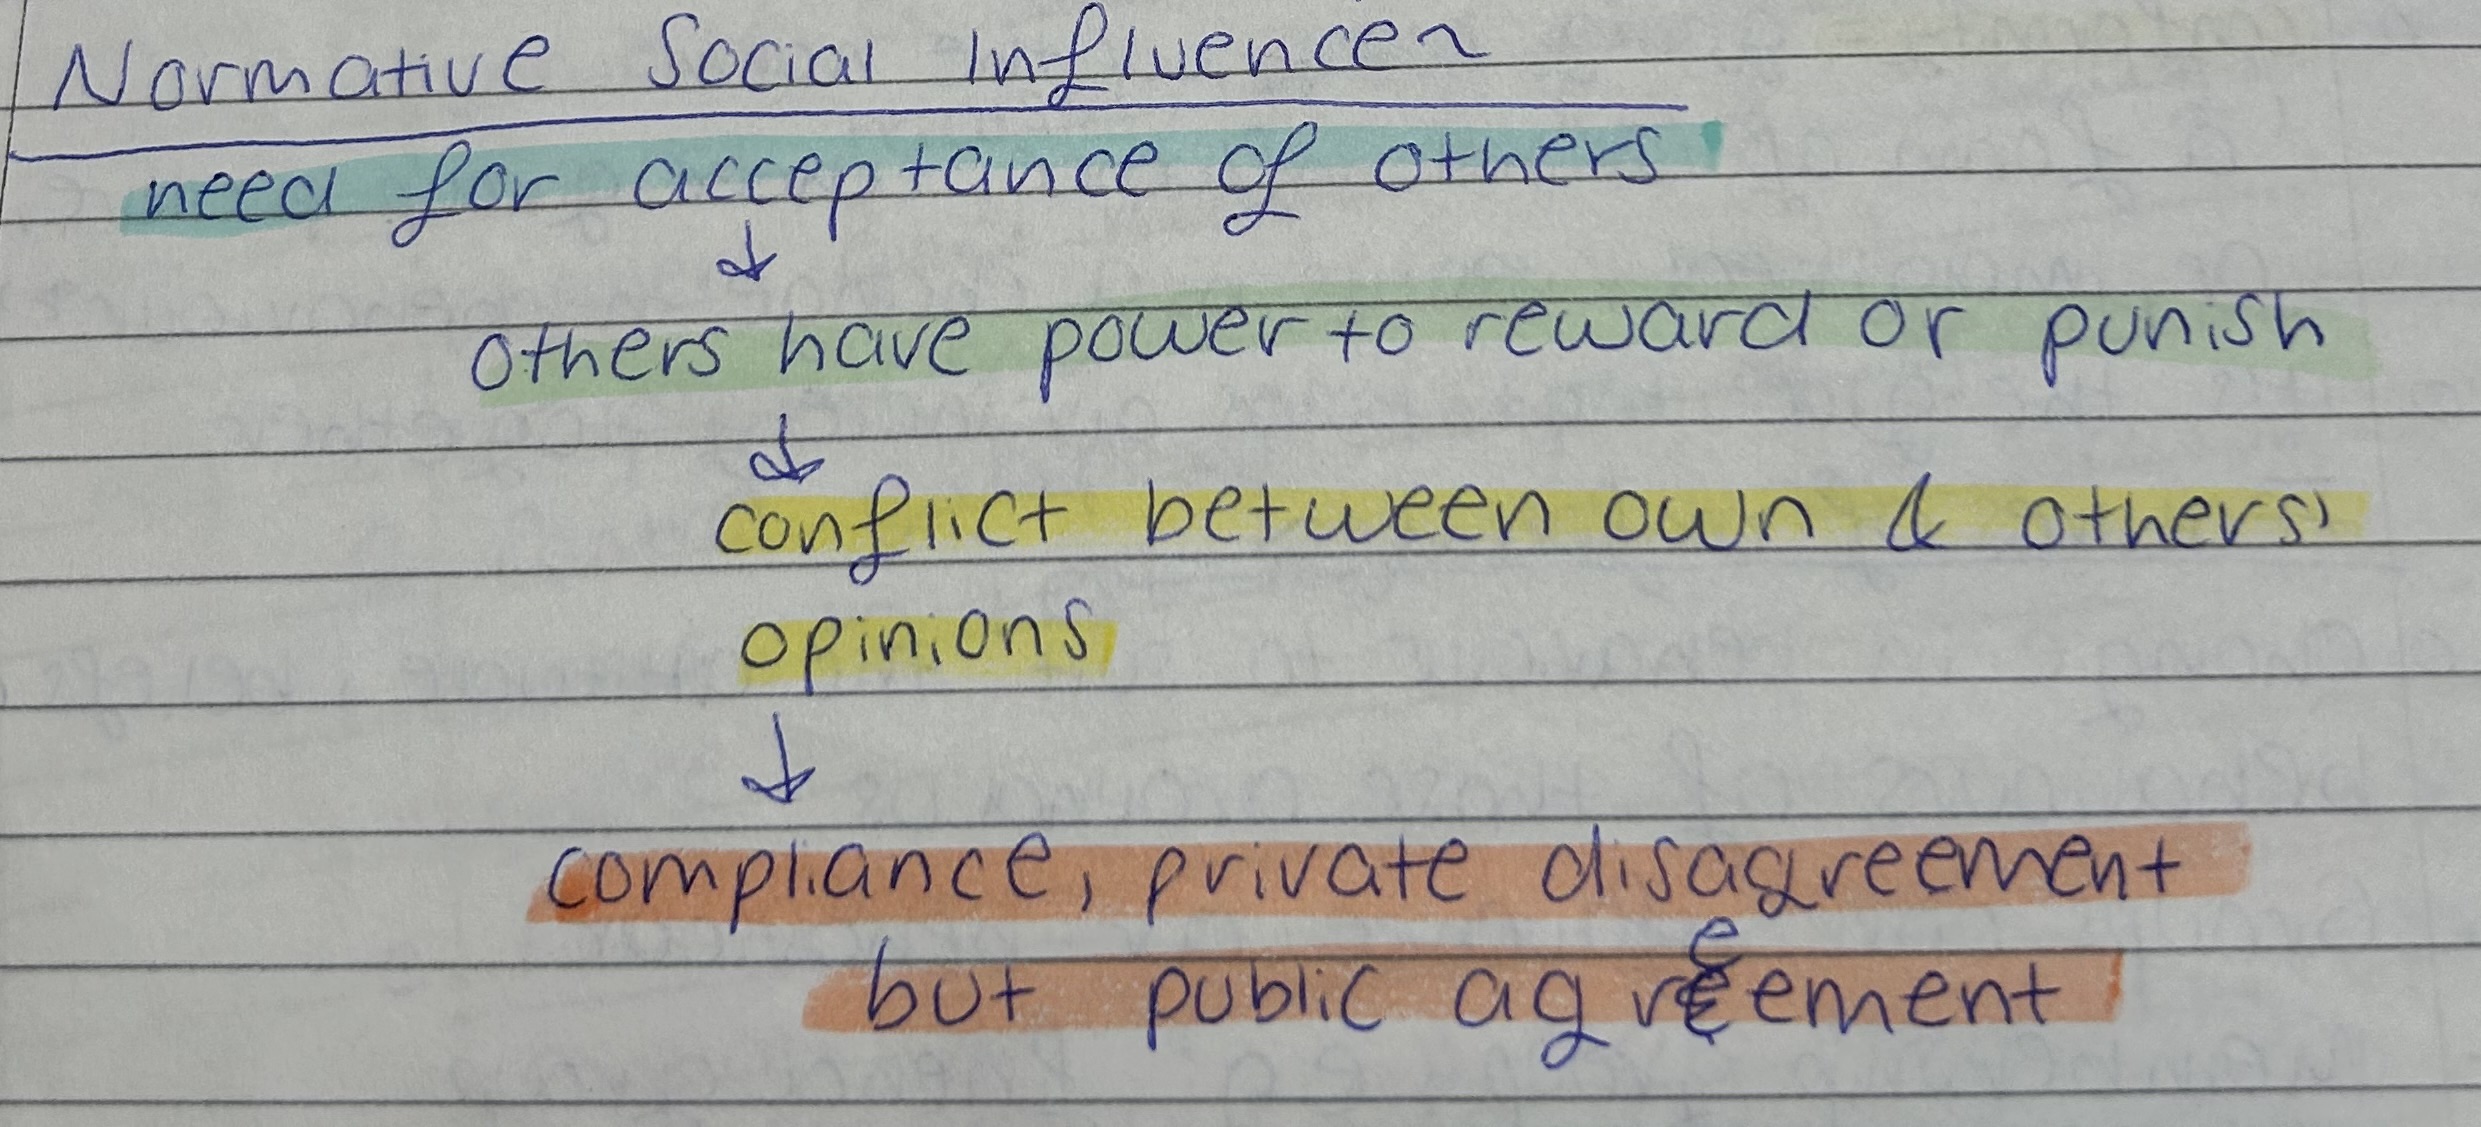 Normative Social Influence~
need for acceptance of others
↓
others have power to reward or punish
↓
conflict between own & others'
opinions
↓
compliance, private disagreement
but public agreement